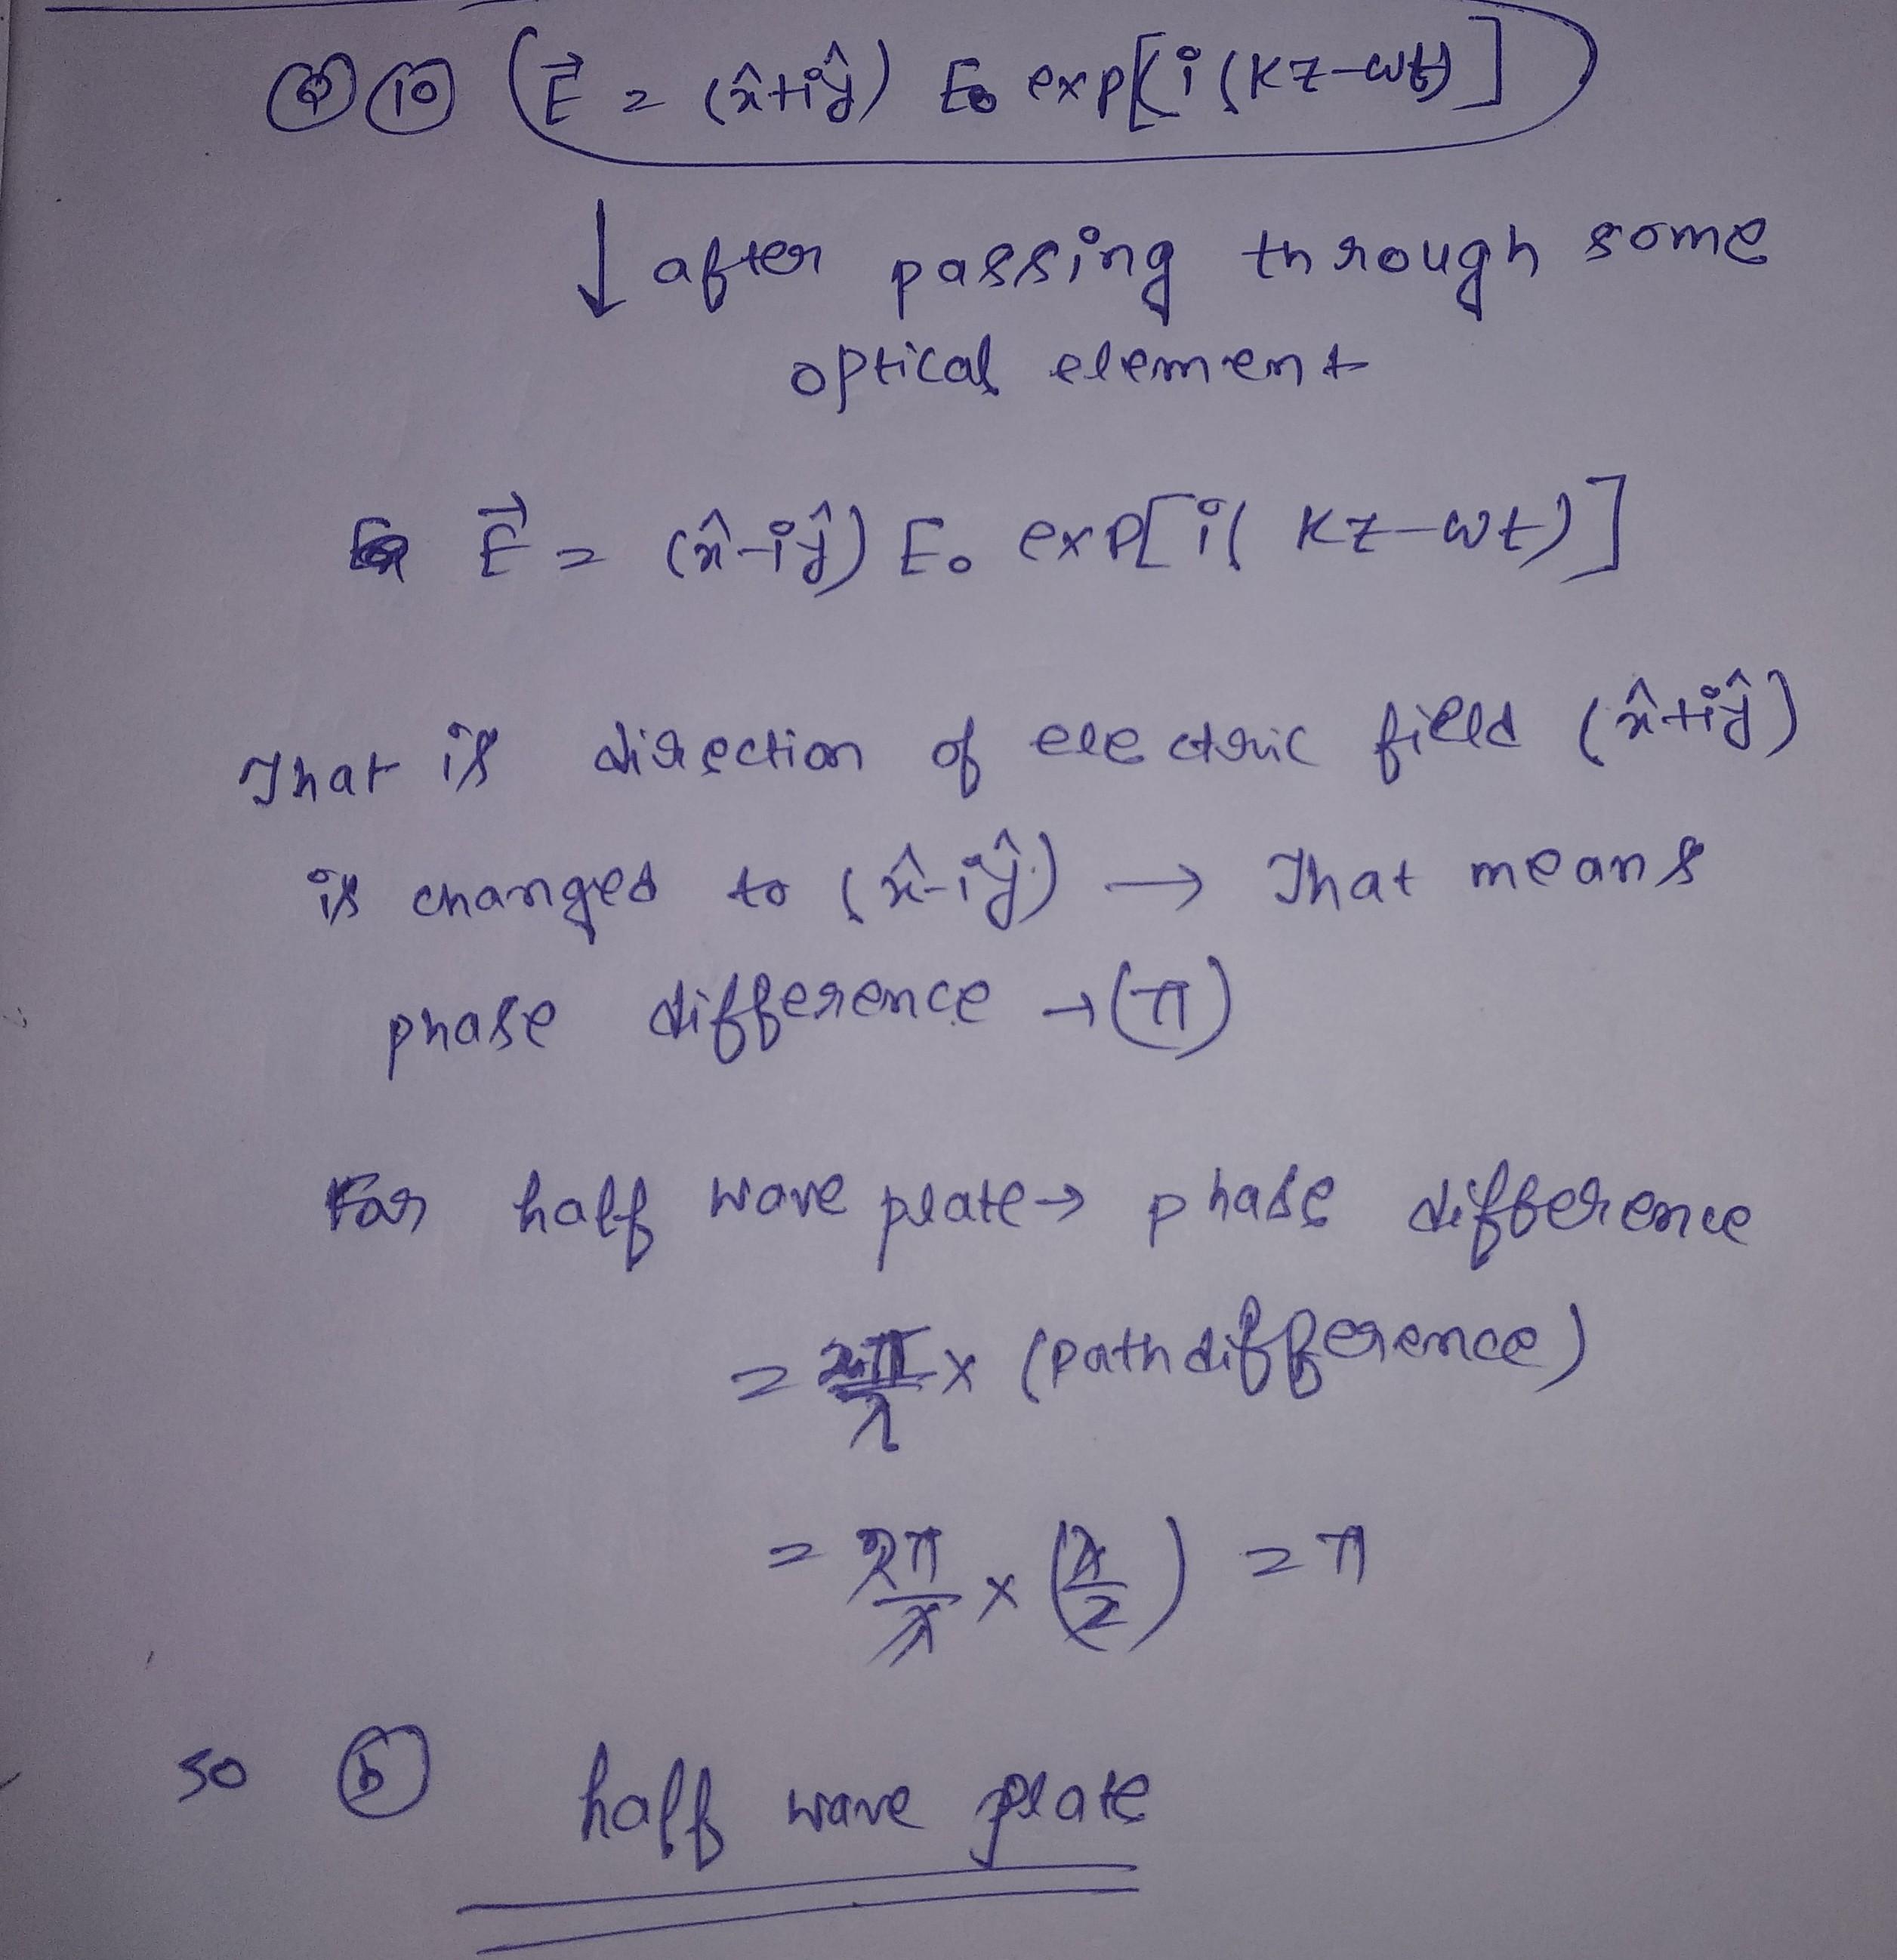 Q 10 (E⃗ = (x̂+iŷ) E₀ exp[i(kz-ωt)])
↓ after passing through some
optical element
E⃗ = (x̂-iŷ) E₀ exp[i(kz-ωt)]
That is direction of electric field (x̂+iŷ)
is changed to (x̂-iŷ) → That means
phase difference → (π)
For half wave plate → phase difference
= 2π/λ × (path difference)
= 2π/λ × (λ/2) = π
so (b) half wave plate